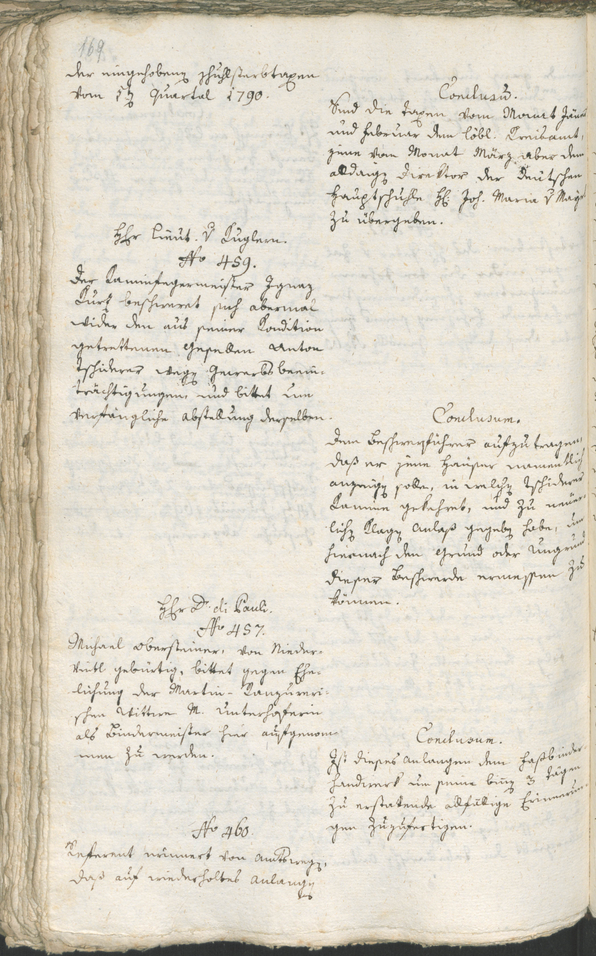 169.
der eingehobenen Schulsterbtaxen
vom 1ten Quartal 1790.
Conclusum.
Sind die Taxen vom Monat Jäner
und Februar dem löbl. Kreisamt,
jene vom Monat März aber dem
alldasigen Direktor der deutschen
Hauptschule H. Joh. Maria v Mayr
zu übergeben.
Herr Lieut. v Kuglern.
No 459.
Der Kaminfegermeister Ignaz
Kurz beschweret sich abermal
wider den aus seiner Kondition
getrettenen Gesellen Anton
Tschiderer wegen Gewerbsbeein-
trächtigungen, und bittet um
verfängliche Abstellung derselben.
Conclusum.
Dem Beschwerführer aufzutragen,
daß er jene Häuser namentlich
anzeigen solle, in welchen Tschiderer
Kamine gekehret, und zu neuer-
lichen Klagen Anlaß gegeben habe, um
hiernach den Grund oder Ungrund
dieser Beschwerde ermessen zu
können.
Herr Dr. di Pauli.
No 457.
Michael Obersteiner, von Nieder-
vintl gebürtig, bittet gegen Ehe-
lichung der Martin-
schen Wittwe M. Unterhoferin
als Bindermeister hier aufgenom-
men zu werden.
Conclusum.
Ist dieses Anlangen dem Faßbinder
Handwerk um seine binnen 3 Tägen
zu erstatende allfällige Erinnerun-
gen zuzufertigen.
No 460
Referent erinnert von Amtswegen,
daß auf wiederholtes Anlangen